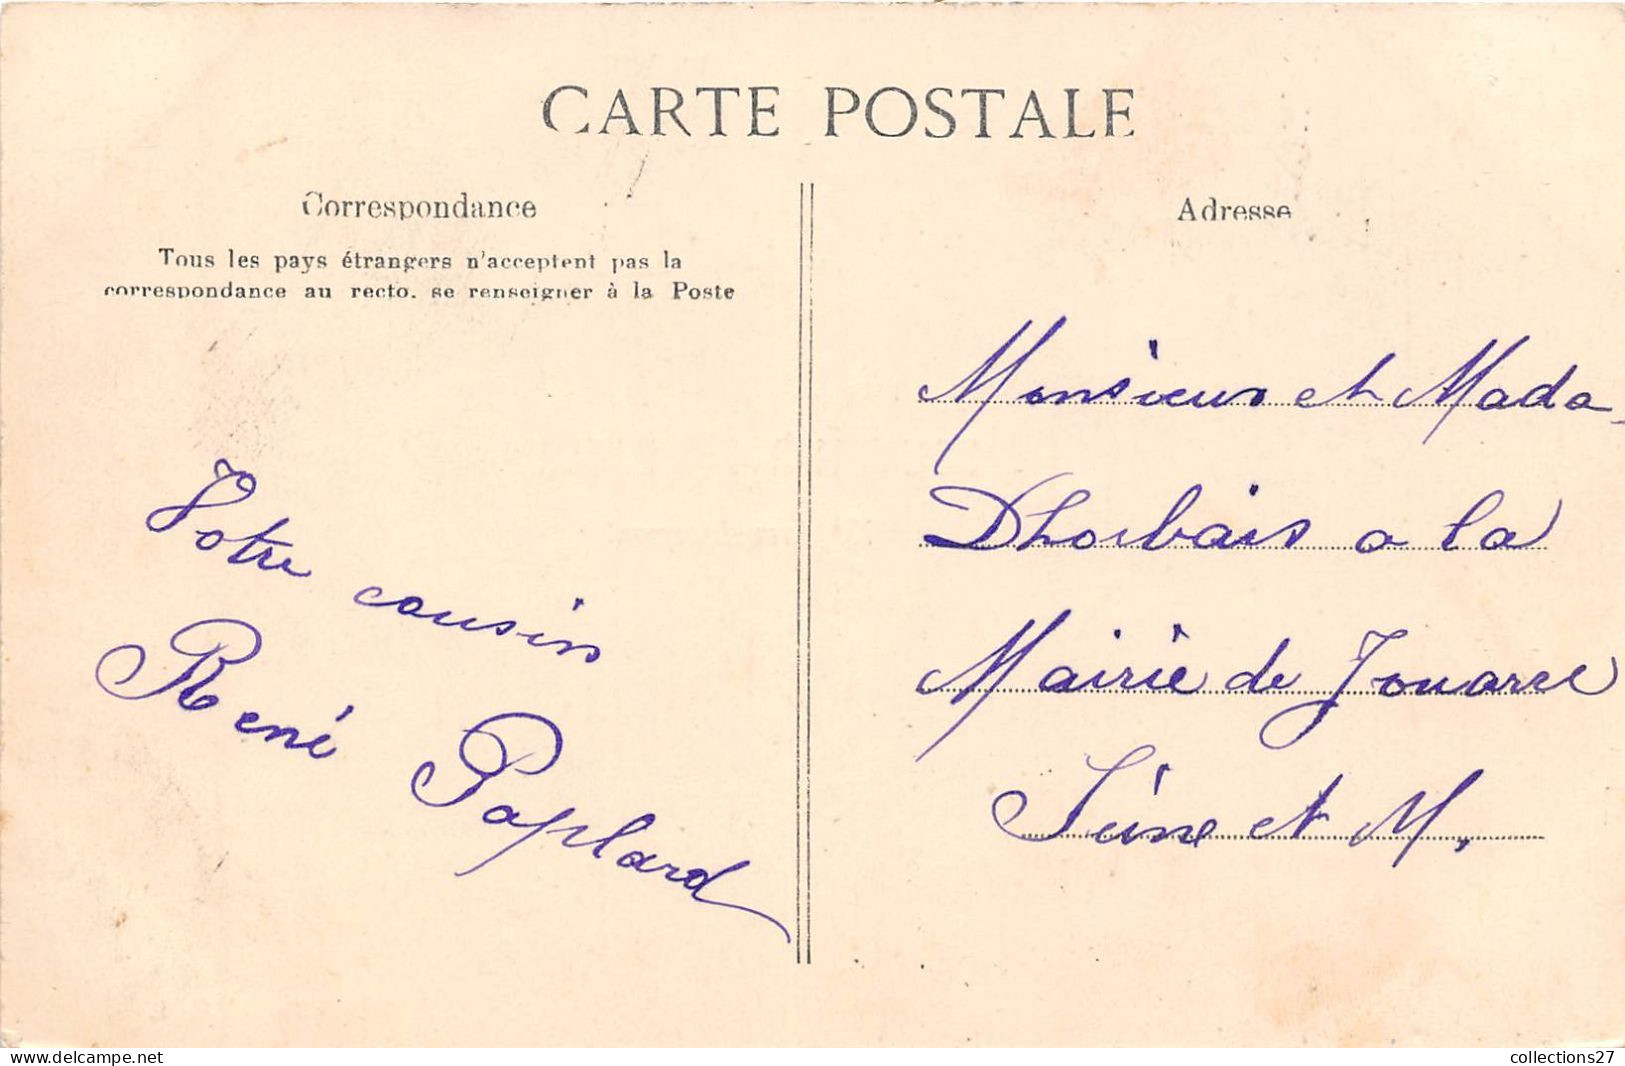 CARTE POSTALE
Correspondance
Tous les pays étrangers n'acceptent pas la
correspondance au recto, se renseigner à la Poste
Votre cousin
René Paplard
Adresse
Monsieur et Mada-
Dhorbais a la
Mairie de Jouarre
Seine et M.
www.delcampe.net
collections27